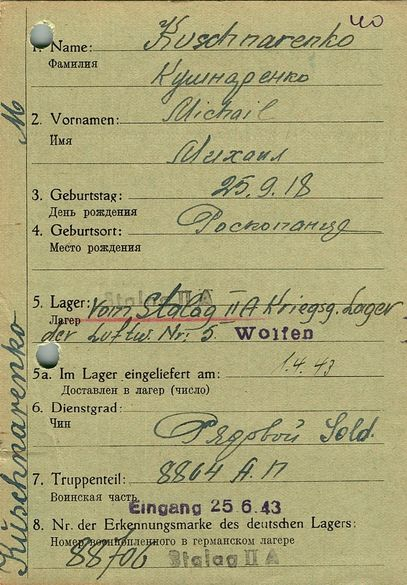 40
1. Name: Kuschnarenko
Фамилия
Кушнаренко
2. Vornamen: Michail
Имя
Михаил
3. Geburtstag: 25.9.18
День рождения
4. Geburtsort:
Место рождения
5. Lager: Stalag II A
Лагер vom Stalag II A Kriegsg. Lager
der Luftw. Nr. 5 Wolfen
5a. Im Lager eingeliefert am: 1.4.43
Доставлен в лагер (число)
6. Dienstgrad:
Чин
Рядовой Sold.
7. Truppenteil: 8864 А.П
Воинская часть
Eingang 25.6.43
8. Nr. der Erkennungsmarke des deutschen Lagers:
Номер военнопленного в германском лагере
88706 Stalag II A
Kuschnarenko M